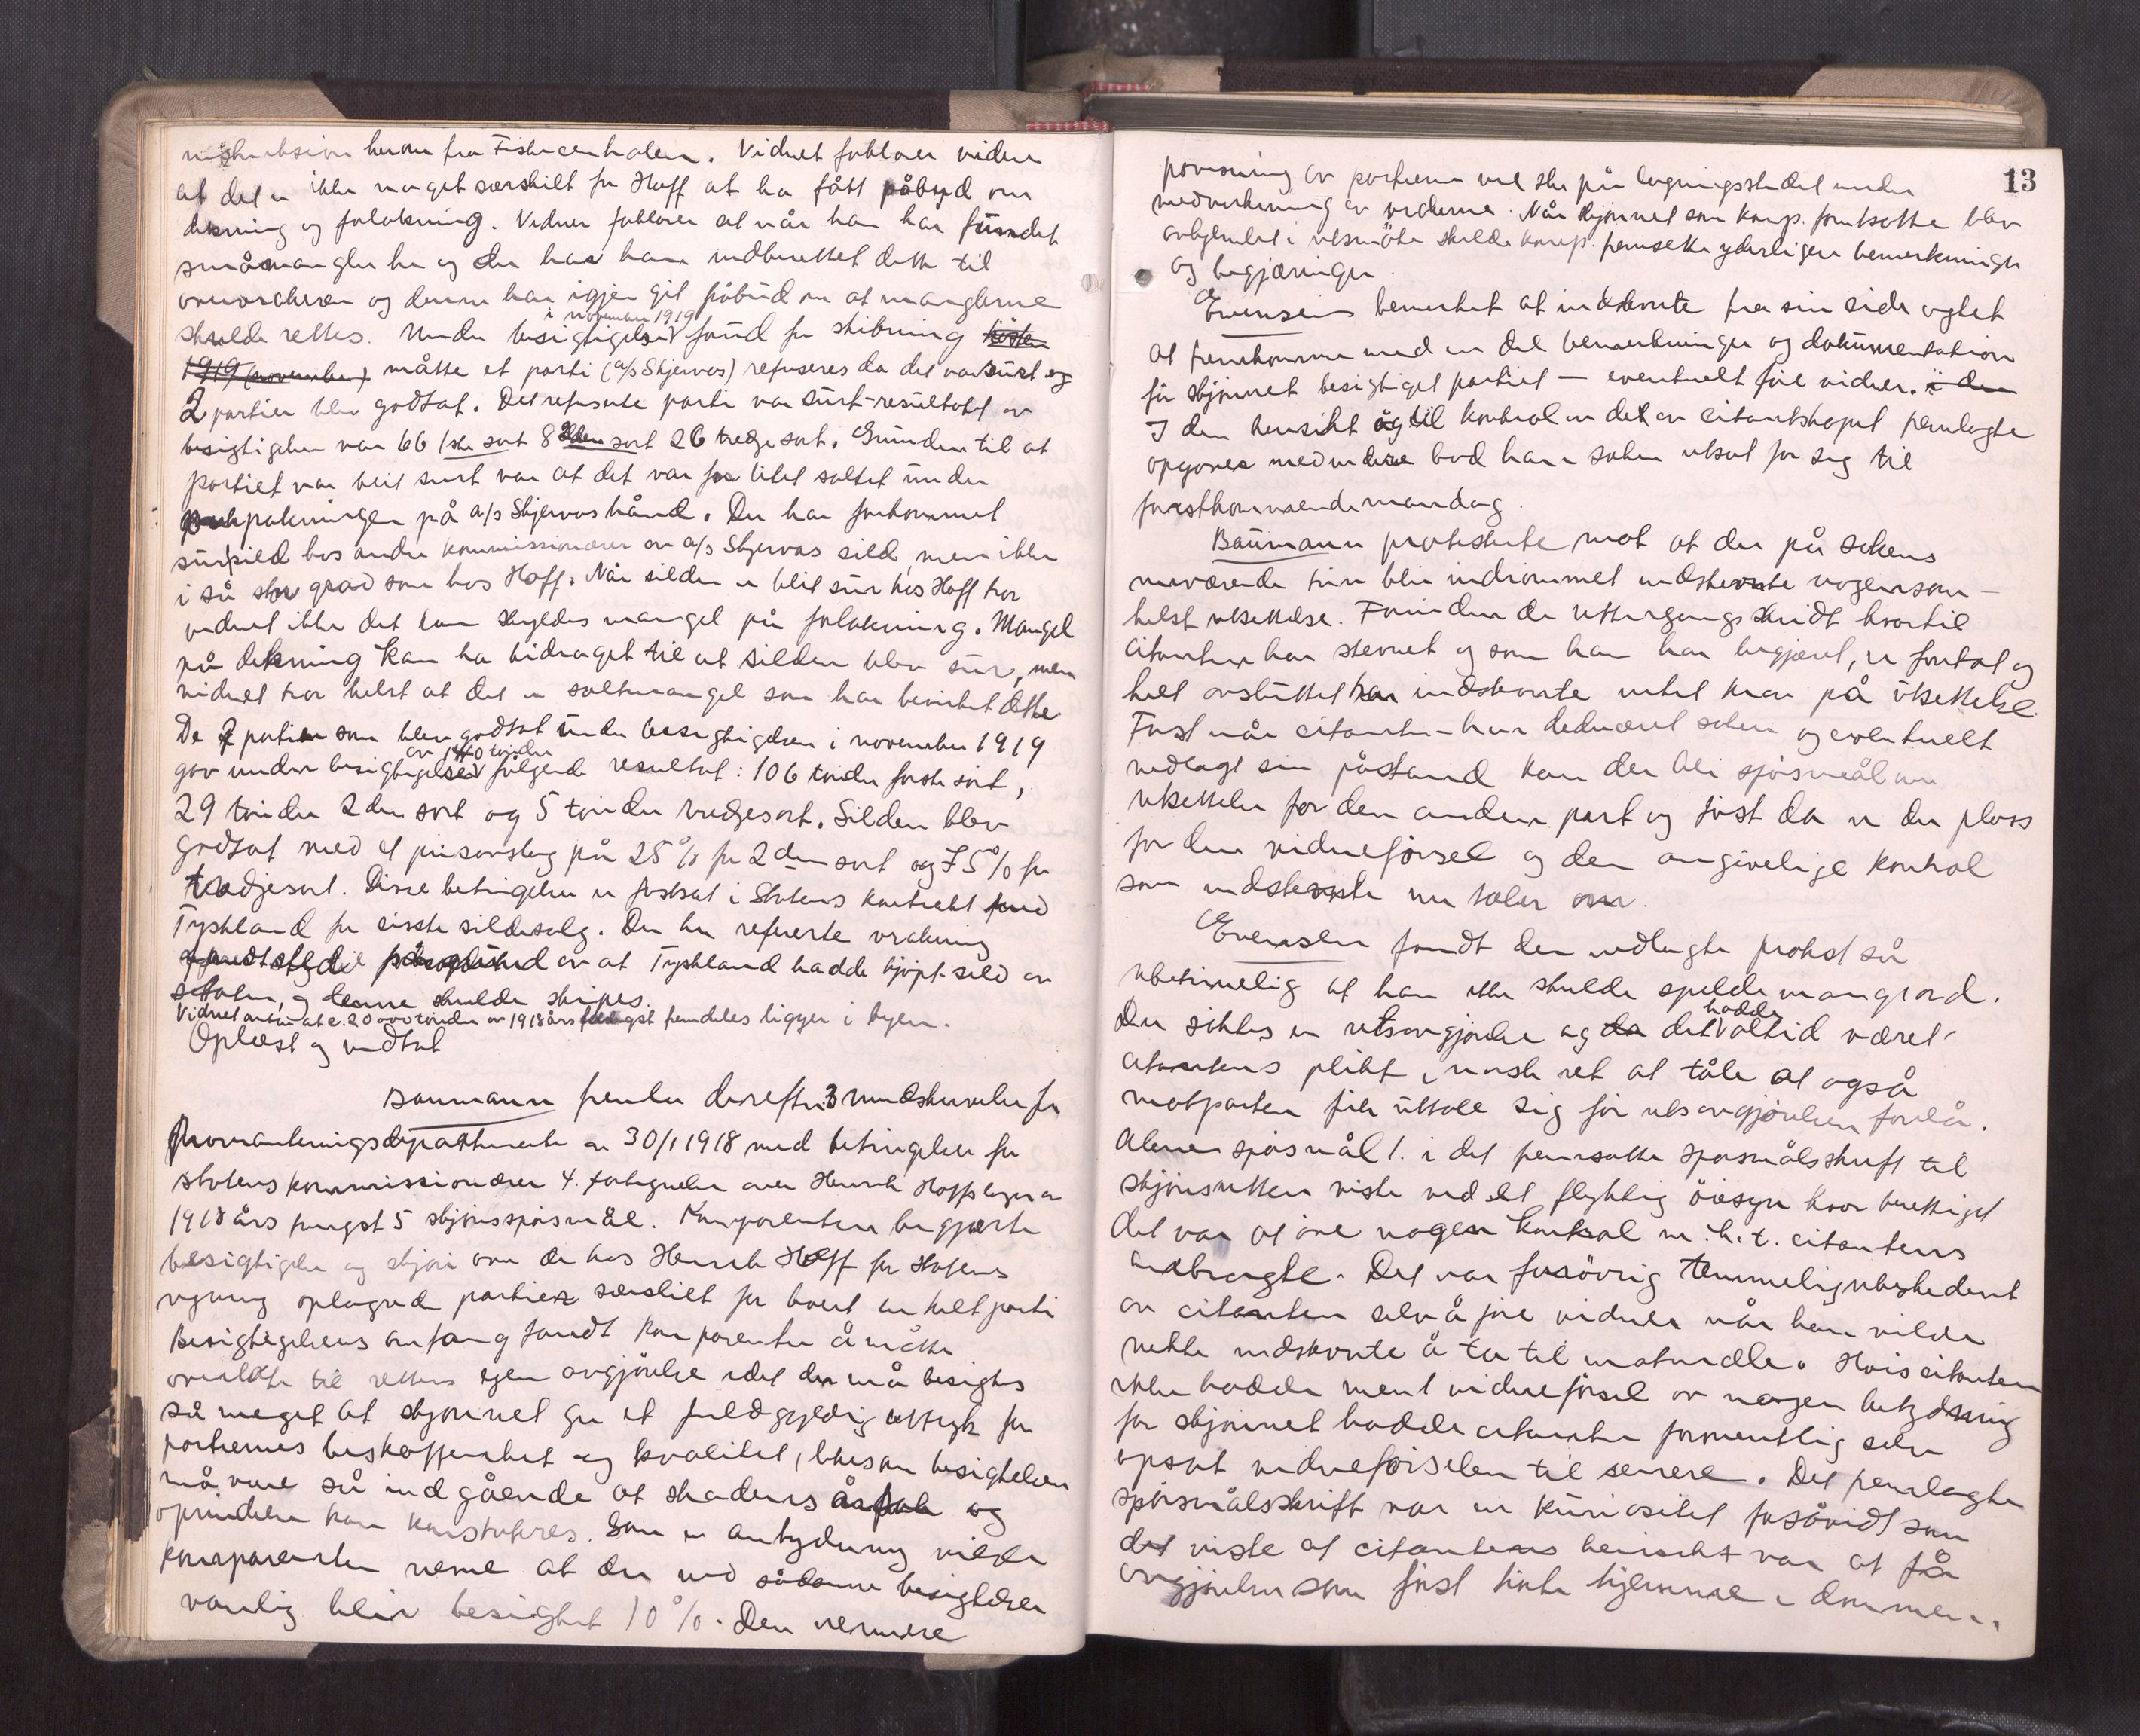 herom fra Fiskecentralen. Vidnet forklarer videre
at det er ikke noget særskilt for Hoff at ha fått påbud om
dekning og folakning. Vidnet forklarer at når han har fundet
småmangler her og der har han indberettet dette til
overvrakeren og denne har igjen git påbud om at manglerne
skulde rettes. Under besigtigelsen i november 1919 found for skibning høsten
1919 (november) måtte et parti (a/s Skjervøs) refuseres da det var surt og
2 partier blev godtat. Det refuserte parti var surt – resultatet av
besigtigelsen var 66 1ste sort 8 2den sort 26 tredje sort. Grunden til at
partiet var blit surt var at det var for litet saltet under
pakningen på a/s Skjervøs hånd. Der har forekommet
sur sild hos andre kommissionærer av a/s Skjervøs sild, men ikke
i så stor grad som hos Hoff. Når silden er blit sur hos Hoff tror
vidnet ikke det kan skyldes mangel på folakning. Mangel
på dekning kan ha bidraget til at silden blev sur, men
vidnet tror helst at det er saltmangel som har bevirket dette.
De 2 partier som blev godtat under besigtigelsen i november 1919
gav under besigtigelsen av 140 tønder følgende resultat: 106 tønder første sort,
29 tønder 2den sort og 5 tønder tredjesort. Silden blev
godtat med et prisavslag på 25 % for 2den sort og 75 % for
tredjesort. Disse betingelser er fastsat i Statens kontrakt med
Tyskland for siste sildesalg. Den her refererte vrakning
av at Tyskland hadde kjøpt sild av
staten, og denne skulde skipes.
Vidnet antar at ca. 20 000 tønder av 1918 års fangst fremdeles ligger i byen.
Oplæst og vedtat
Baumann fremla derefter 3 rundskrivelse fra
Provianteringsdepartementet av 30/1 1918 med betingelser for
statens kommissionærer 4. fortegnelse over Henrik Hoffs lager av
1918 års fangst 5 skjønsspørsmål. Komparenten begjærte
besigtigelse og skjøn over de hos Henrik Hoff for Statens
regning oplagrede partier særskilt for hvert enkelt parti
Besigtigelsens omfang fandt komparenten å måtte
overlate til rettens egen avgjørelse idet der må besigtes
så meget at skjønnet gir et fuldgyldig uttryk for
partiernes beskaffenhet og kvalitet, likesom besigtelsen
må være så indgående at skadens årsak og
oprindelse kan konstateres. Som en antydning vilde
komparenten nevne at der ved sådanne besigtelser
vanlig blir besigtet 10 %. Den nærmere
13
påvisning av partierne vil ske på lagringsstedet under
medvirkning av vrakerne. Når skjønnet som komp. forutsatte blev
avhjemlet i retsmøte skulde komp. fremsette yderligere bemerkninger
og begjæringer.
Evensen bemerket at indstevnte fra sin side agtet
at fremkomme med en del bemerkninger og dokumentation
før skjønnet besigtiget partiet – eventuelt føre vidner. i den
I den hensikt og til kontrol av det av citantskapet fremlagte
opgaver med videre bad han saken utsat for sig til
førstkommende mandag.
Baumann protesterte mot at der på sakens
nuværende trin blir indrømmet indstevnte nogensom-
helst utsettelse. Forinden de rettergangsskridt hvortil
citanten har stevnet og som han har begjæret, er foretat og
helt avsluttet har indstevnte intet krav på utsettelse.
Først når citanten har deduceret saken og eventuelt
nedlagt sin påstand kan der bli spørsmål om
utsettelse for den anden part og først da er der plass
for den vidneførsel og den angivelige kontrol
som indstevnte nu taler om.
Evensen fandt den nedlagte protest så
ubetimelig at han ikke skulde spilde mange ord.
Der siktes en retsavgjørelse og da det hadde altid været
citantens plikt i norsk ret at tåle at også
motparten fik uttale sig før retsavgjørelsen forelå.
Alene spørsmål 1. i det fremsatte spørsmålsskrift til
skjønsretten viste ved et flygtig øiesyn hvor berettiget
det var at øve nogen kontrol m. h. t. citantens
anbragte. Det var forøvrig temmelig ubeskedent
av citanten selv å føre vidner når han vilde
nekte indstevnte å ta til motmæle. Hvis citanten
ikke hadde ment vidneførsel av nogen betydning
for skjønnet hadde citanten formentlig selv
opsat vidneførselen til senere. Det fremlagte
spørsmålsskrift var en kuriositet forsåvidt som
det viste at citantens hensikt var at få
avgjørelser som først hørte hjemme i dommen.